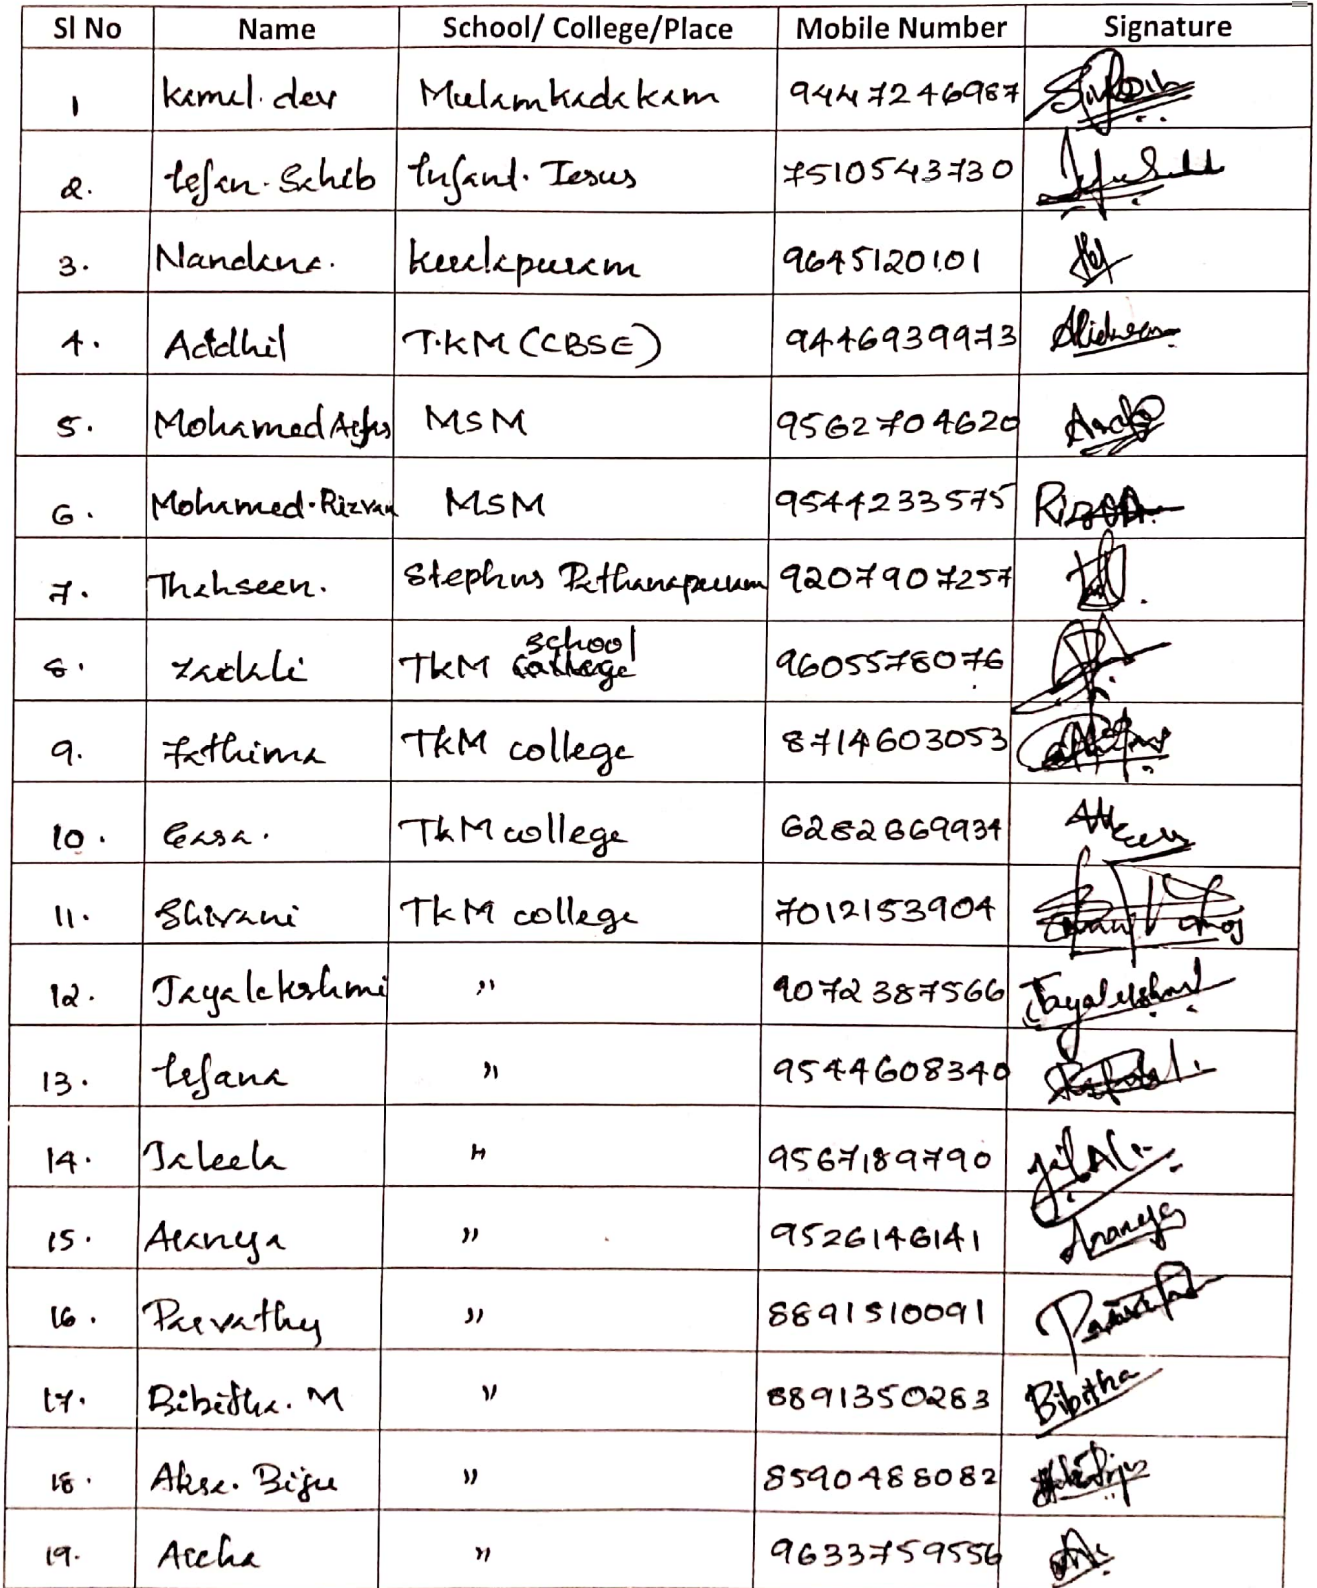 Sl No Name School/ College/Place Mobile Number Signature
1 Kamal. dev Mulamkadakam 9447246987
2. Lefan. Sahib Infant. Jesus 7510543730
3. Nandana. 9645120101
4. Aadhil T.KM (CBSE) 9446939973
5. Mohamed MSM 9562704620
6. Mohamed. Rizvan MSM 9544233575
7. Thahseen. Stephns Pathanapuram 9207907257
school
8. TKM college 9605578076
9. Fathima TKM college 8714603053
10. TKM college 6282869934
11. Shivani TKM college 7012153904
12. Jayalekshmi " 9072387566 Jayalekshmi
13. Lefana " 9544608340
14. Jaleela " 9567189790
15. Ananya " 9526146141 Ananya
16. Parvathy " 8891510091
17. Bibitha. M " 8891350283 Bibitha
18. Aksa. Biju " 8590488082
19. " 9633759556